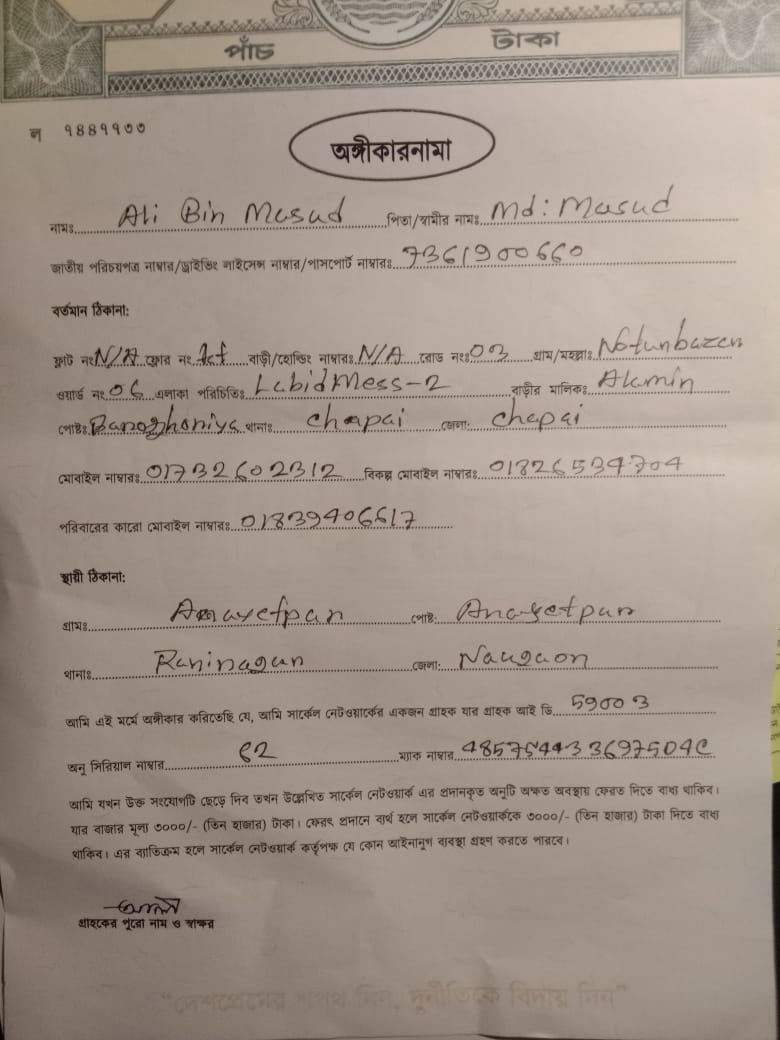 পাঁচ টাকা
ল ৭৪৪৭৭০০
অঙ্গীকারনামা
নামঃ Ali Bin Masud পিতা/স্বামীর নামঃ Md: Masud
জাতীয় পরিচয়পত্র নাম্বার/ড্রাইভিং লাইসেন্স নাম্বার/পাসপোর্ট নাম্বারঃ 7361900660
বর্তমান ঠিকানা:
ফ্লাট নং N/A ফ্লোর নং 1st বাড়ী/হোল্ডিং নাম্বারঃ N/A রোড নংঃ 03 গ্রাম/মহল্লাঃ Notunbazar
ওয়ার্ড নং 06 এলাকা পরিচিতিঃ Labid Mess-2 বাড়ীর মালিকঃ Alamin
পোষ্টঃ থানাঃ chapai জেলা: chapai
মোবাইল নাম্বারঃ 01732602312 বিকল্প মোবাইল নাম্বারঃ 01826534704
পরিবারের কারো মোবাইল নাম্বারঃ 01839406617
স্থায়ী ঠিকানা:
গ্রামঃ পোষ্ট:
থানাঃ Raninagar জেলা: Naugaon
আমি এই মর্মে অঙ্গীকার করিতেছি যে, আমি সার্কেল নেটওয়ার্কের একজন গ্রাহক যার গ্রাহক আই ডি 59003
অনু সিরিয়াল নাম্বার ৫2 ম্যাক নাম্বার 485754433697504C
আমি যখন উক্ত সংযোগটি ছেড়ে দিব তখন উল্লেখিত সার্কেল নেটওয়ার্ক এর প্রদানকৃত অনুটি অক্ষত অবস্থায় ফেরত দিতে বাধ্য থাকিব।
যার বাজার মূল্য ৩০০০/- (তিন হাজার) টাকা। ফেরৎ প্রদানে ব্যর্থ হলে সার্কেল নেটওয়ার্ককে ৩০০০/- (তিন হাজার) টাকা দিতে বাধ্য
থাকিব। এর ব্যতিক্রম হলে সার্কেল নেটওয়ার্ক কর্তৃপক্ষ যে কোন আইনানুগ ব্যবস্থা গ্রহণ করতে পারবে।
গ্রাহকের পুরো নাম ও স্বাক্ষর
"দেশপ্রেমের শপথ নিন, দুর্নীতিকে বিদায় দিন"